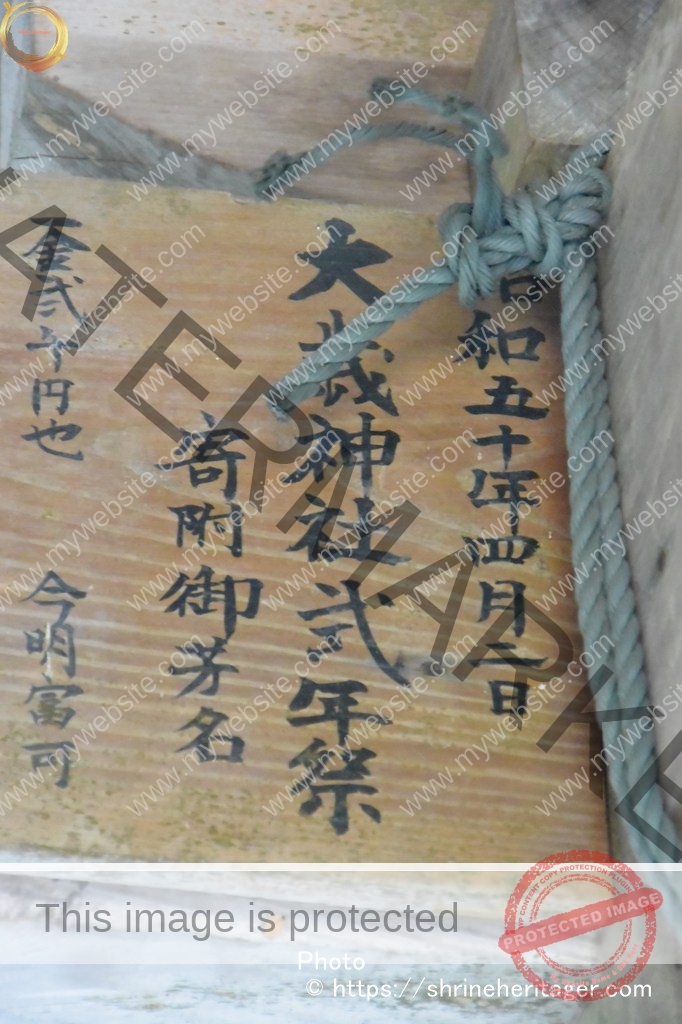 昭和五十年四月二日
大歳神社式年祭
寄附御芳名
金弐千円也 今明富可
WATERMARKED
www.mywebsite.com
This image is protected
MY CONTENT COPY PROTECTION PLUGIN
PROTECTED IMAGE
Photo
© https://shrineheritager.com